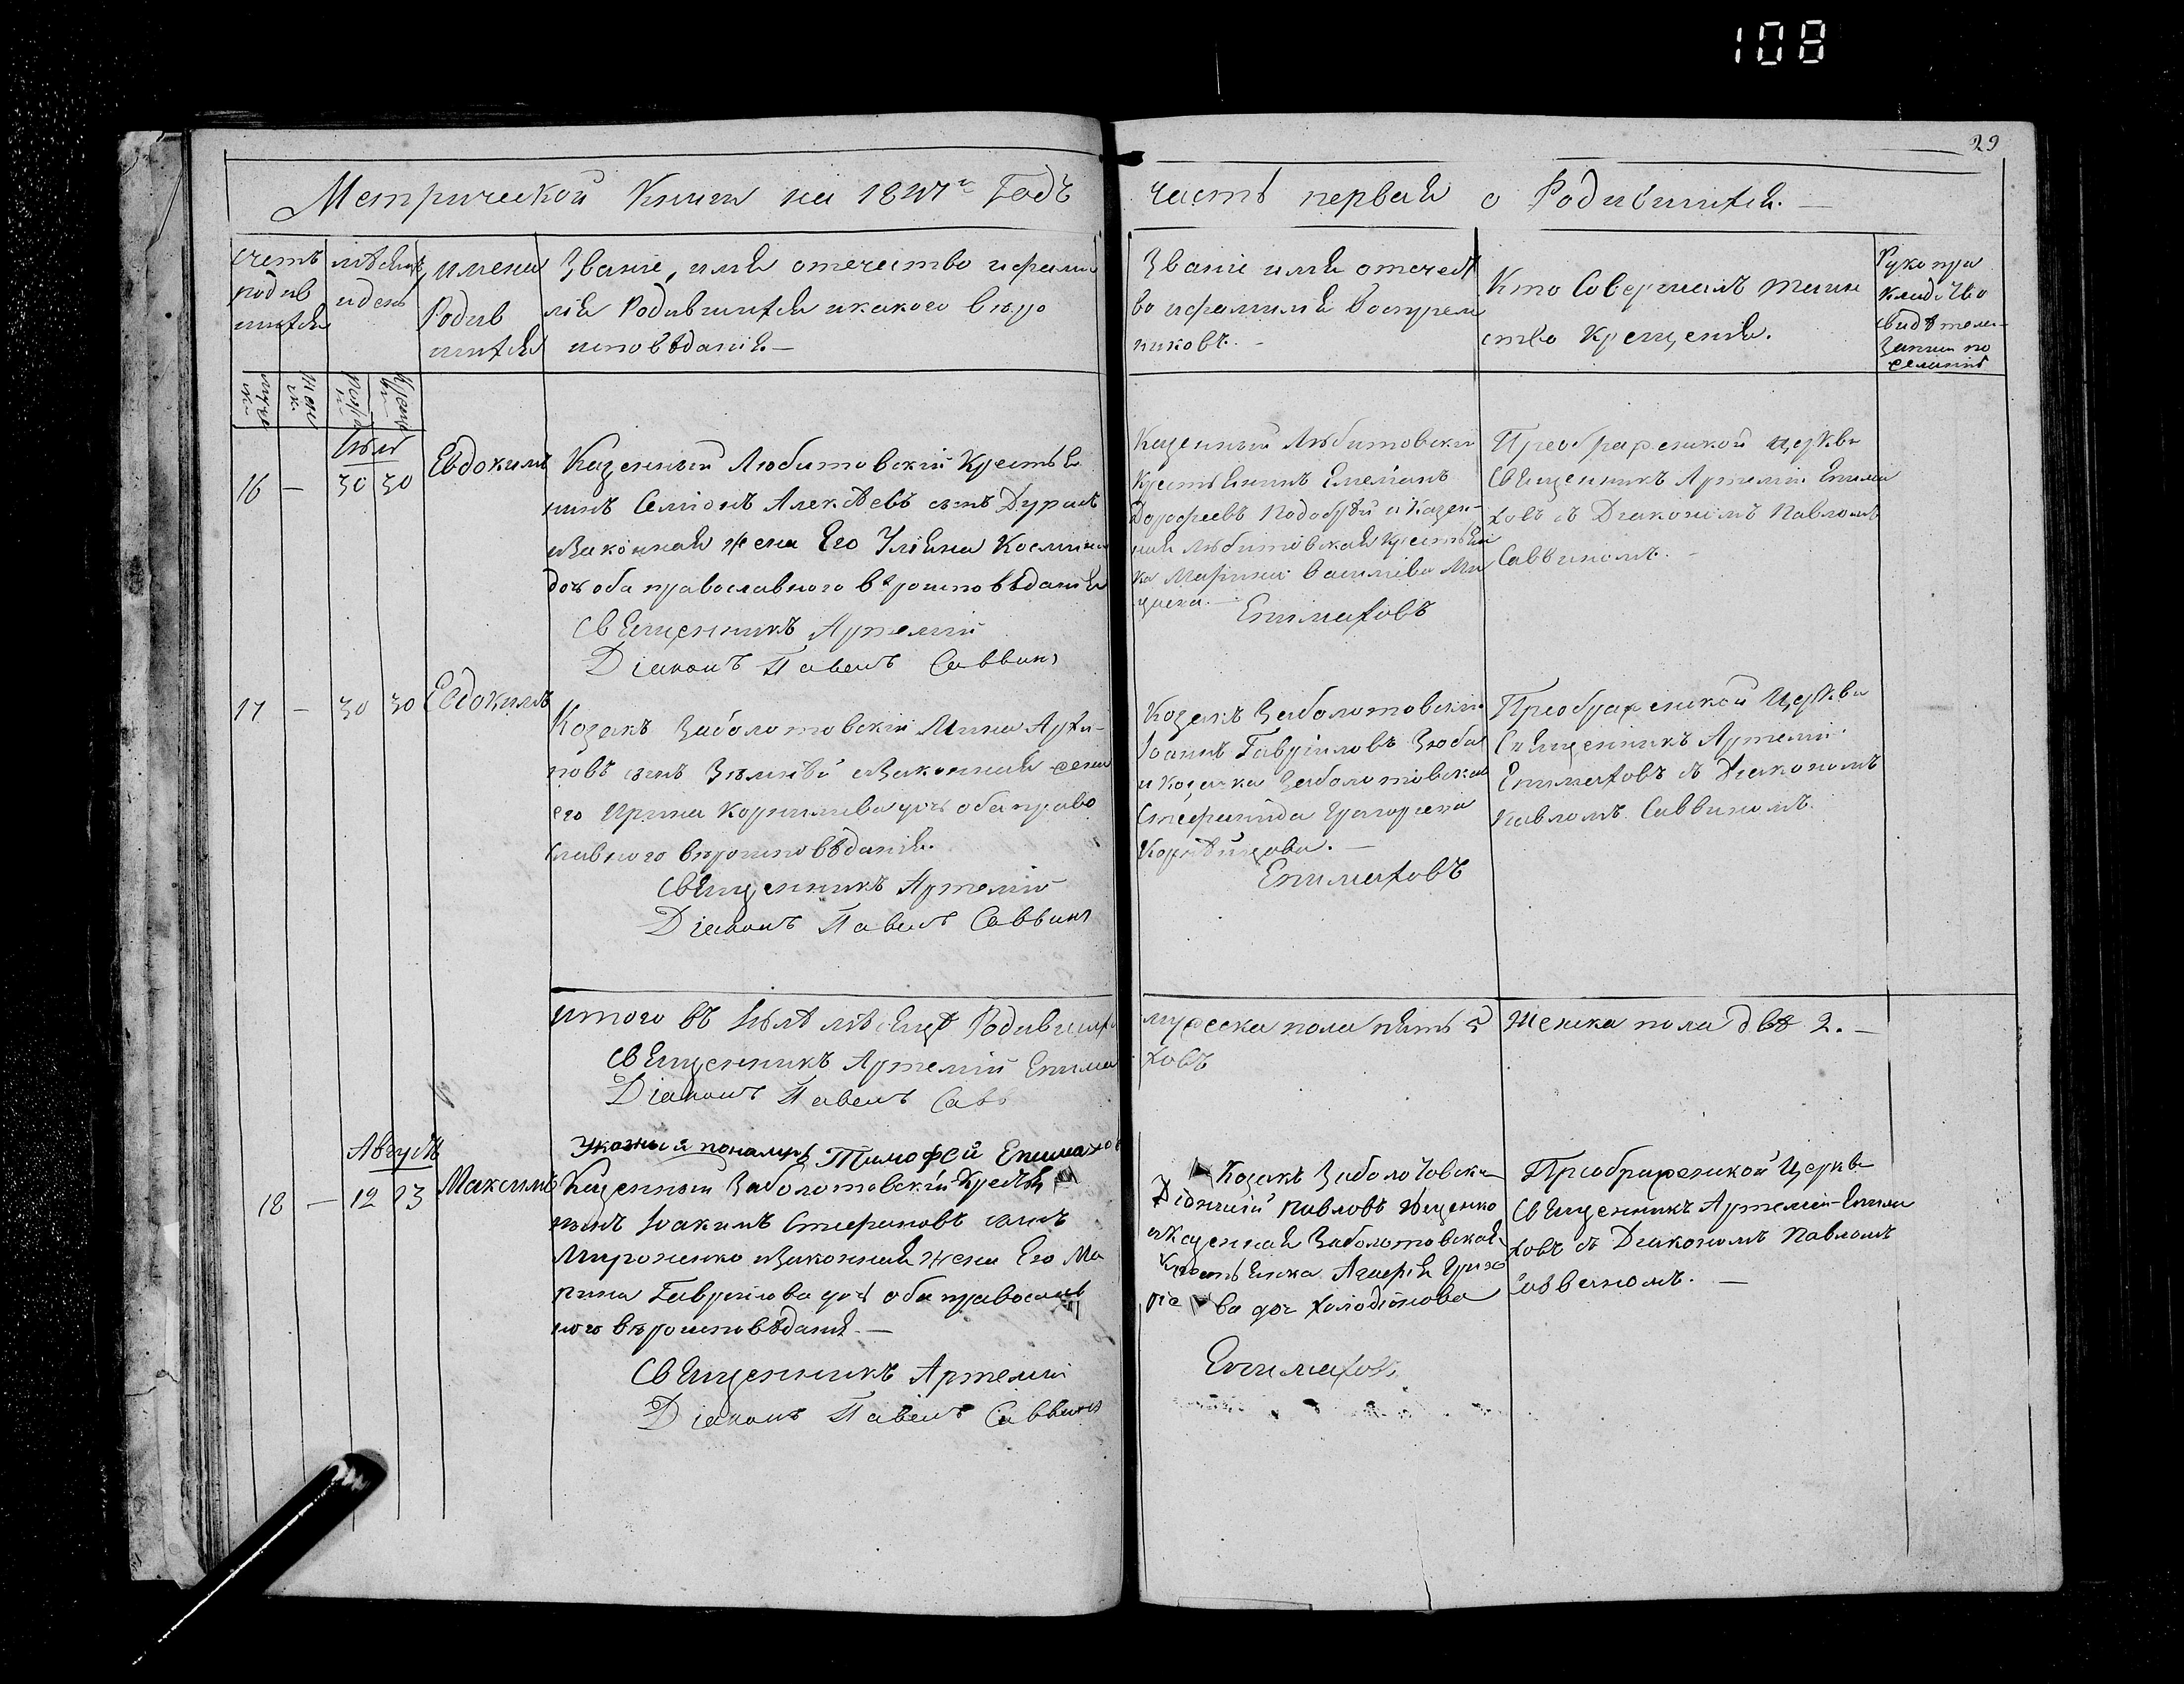 108
29
Метрической Книги на 1847й Годъ
часть первая о Родившихся.
счетъ родив шихся
мѣсяцъ и день
имена Родив шихся
Званіе, имя отечество и фами
лія Родившихся и какого вѣро
исповѣданія
Званіе имя отечест
во и фамилія Воспріем
никовъ.
Кто Совершалъ таин
ство Крещенія.
Руко при
кладство
свидѣтелей
Записи по
желанію
Іюль
16 — 30 30 Евдокимъ
Казенный Любитовскій Крестья
нинъ Семіонъ Алексѣевъ сынъ Дуракъ
и Законная жена Его Уліяна Космина
дочь оба православного вѣроисповѣданія
Священникъ Артемій
Діаконъ Павелъ Саввинъ
Казенный Любитовскій
Крестьянинъ Емеліанъ
Дорофеевъ Подобѣй и Казен-
ная Любитовская Крестьян
ка Марина Василіева
Епимаховъ
Преображенской церкви
Священникъ Артемій Епима
ховъ съ Діакономъ Павломъ
Саввиномъ.
17 — 30 30 Евдокимъ
Козакъ Заболотовскій Мина Архи-
повъ сынъ и Законная жена
его Ирина Корниліева дочь оба право
славного вѣроисповѣданія.
Священникъ Артемій
Діаконъ Павелъ Саввинъ
Козакъ Заболотовскій
Іоаннъ Гавріиловъ Зюба
и Козачка Заболотовская
Стефанида Григоріева
Епимаховъ
Преображенской Церкви
Священникъ Артемій
Епимаховъ съ Діакономъ
Павломъ Саввиномъ.
итого въ Іюлѣ мѣсяцѣ Родившихся
мужеска пола пять 5
Женска пола двѣ 2. —
Священникъ Артемій Епима
ховъ
Діаконъ Павелъ Савв
Указный пономарь Тимофей Епимахов
Августъ
18 — 12 13 Максимъ
Казенный Заболотовскій Крестья
нинъ Іоакимъ Стефановъ сынъ
Мироненко и Законная жена Его Ма
рина Гавріилова дочь оба православ
ного вѣроисповѣданія. —
Священникъ Артемій
Діаконъ Павелъ Саввинъ
Козакъ Заболотовскій
Діонисій Павловъ Яценко
и Казенная Заболотовская
Крестьянка Агафія Григо
ріева доч Холодіонова
Епимаховъ
Преображенской Церкви
Священникъ Артемій Епима
ховъ съ Діакономъ Павломъ
Саввиномъ. —